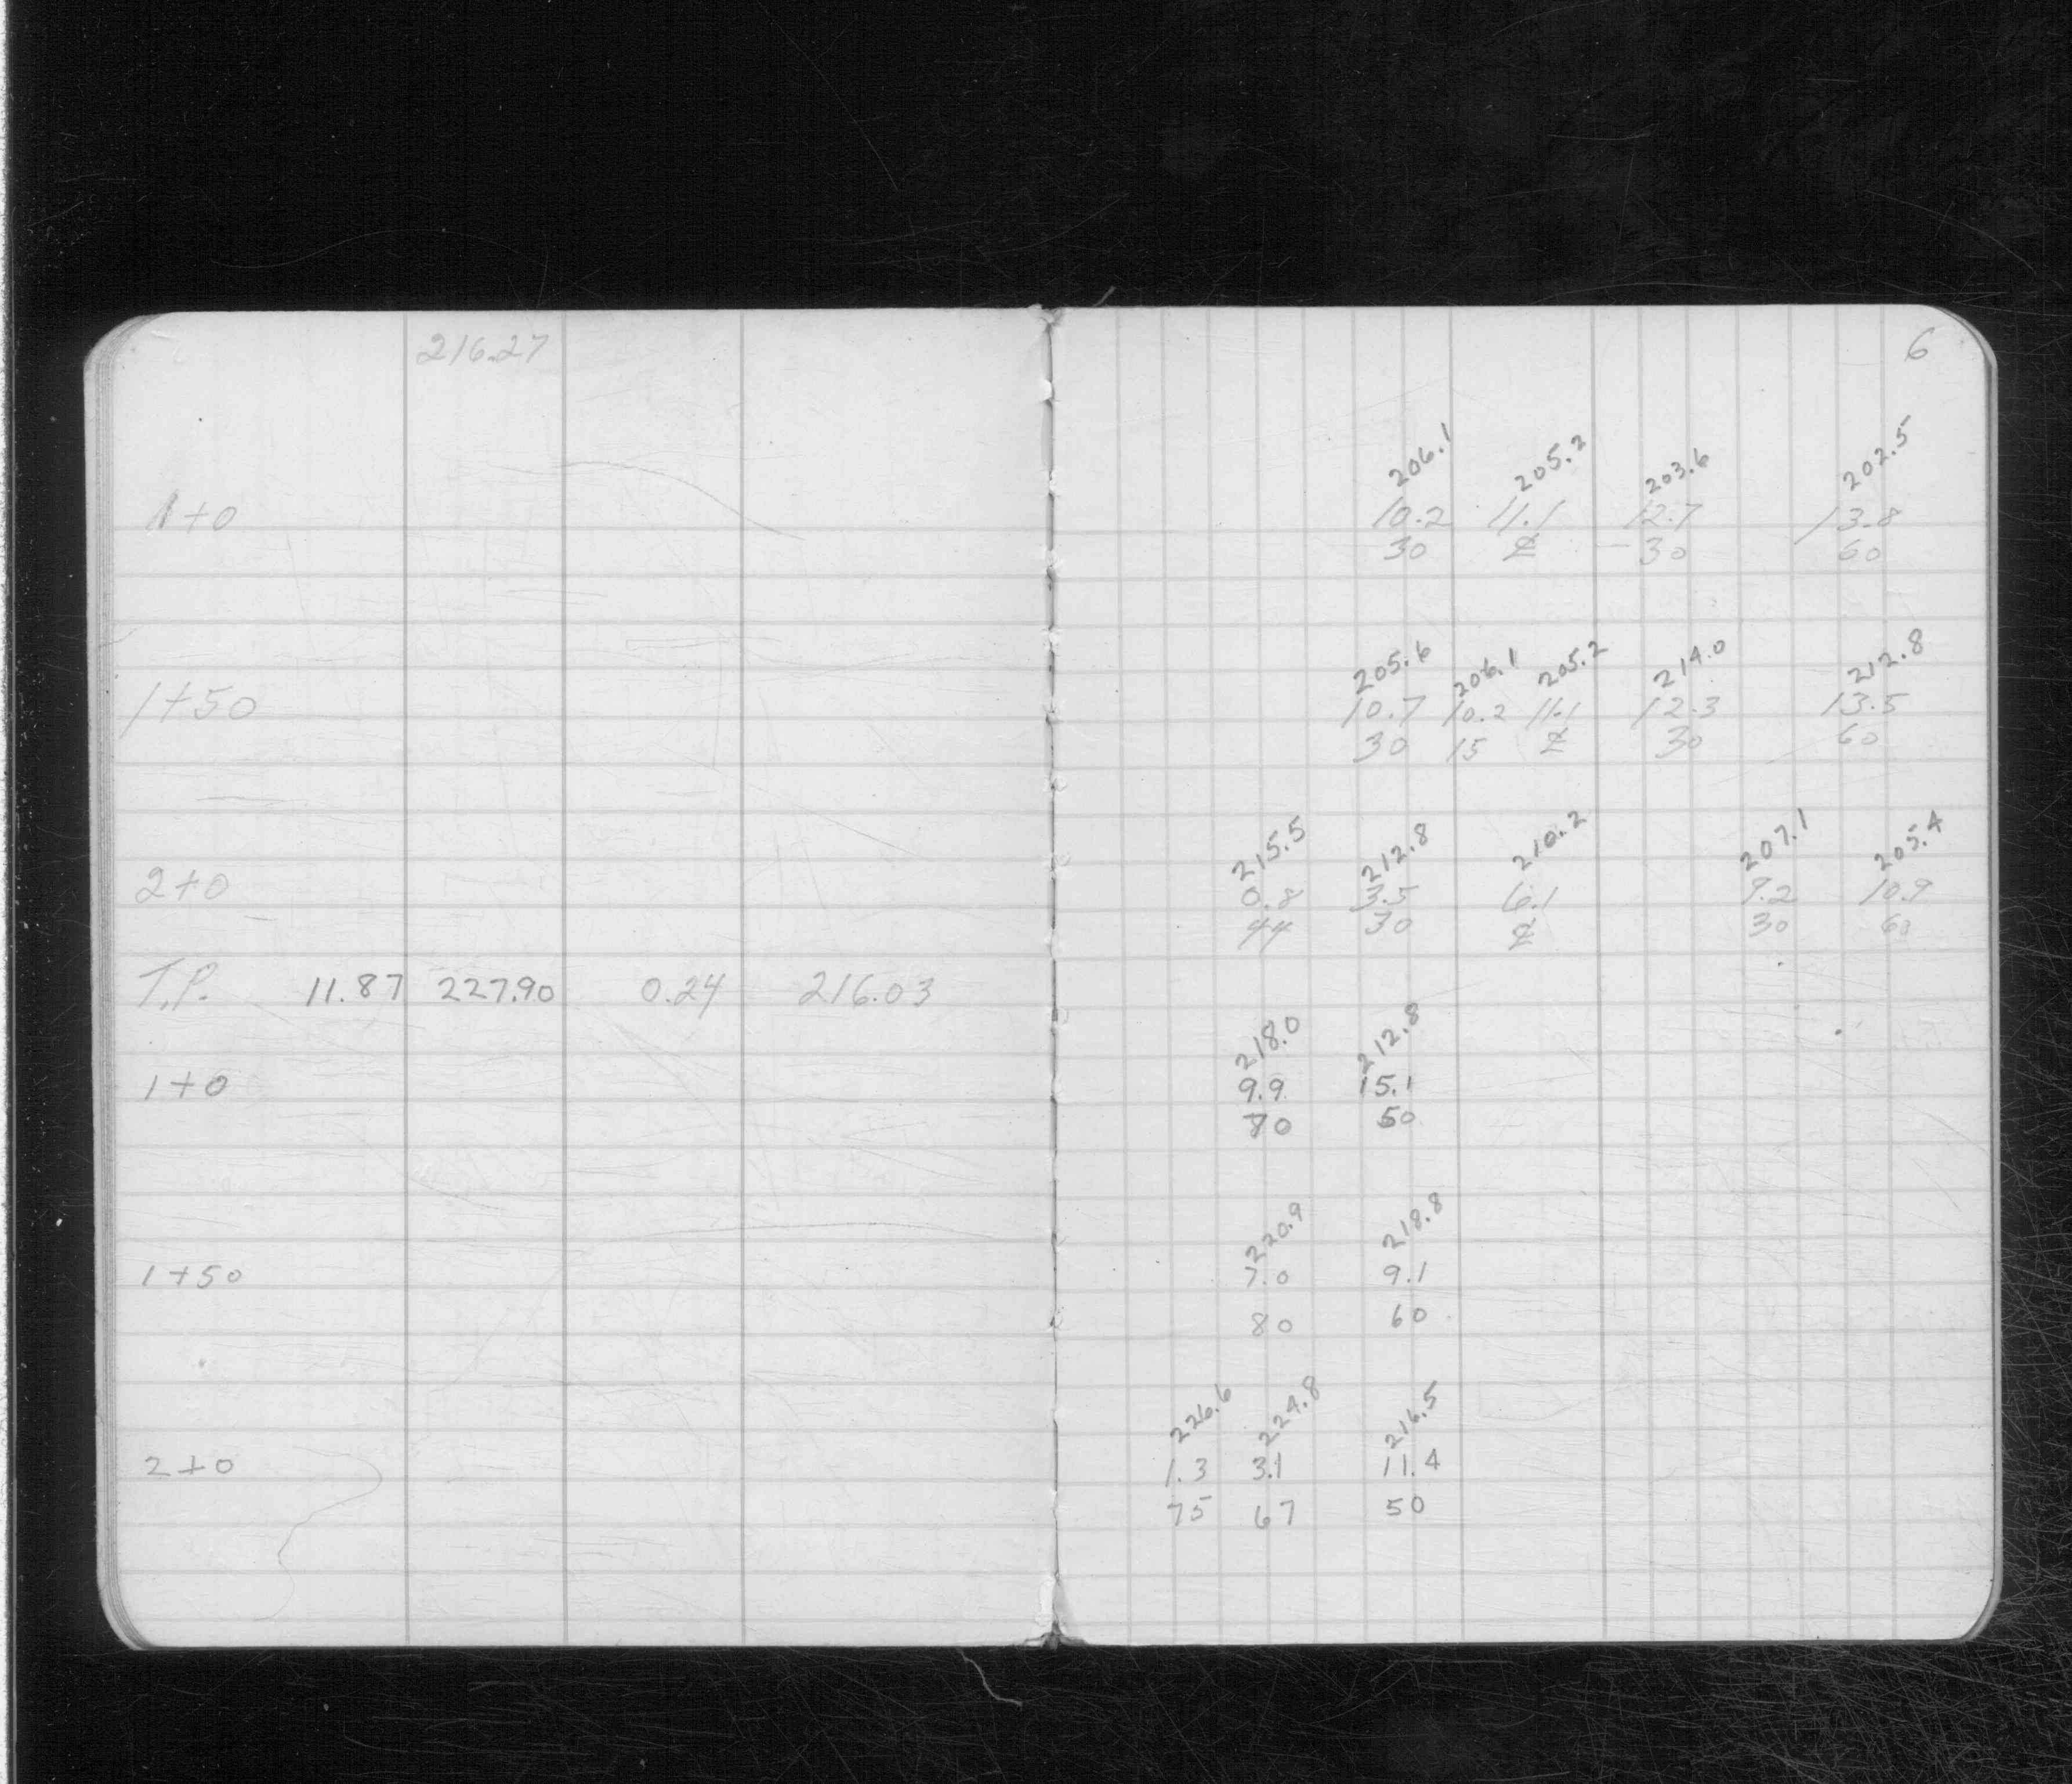 216.27
6
206.1 205.2 203.6 202.5
1+0 10.2 11.1 12.7 13.8
30 ℄ 30 60
205.6 206.1 205.2 214.0 212.8
1+50 10.7 10.2 11.1 12.3 13.5
30 15 ℄ 30 60
215.5 212.8 210.2 207.1 205.4
2+0 0.8 3.5 6.1 9.2 10.9
44 30 ℄ 30 60
T.P. 11.87 227.90 0.24 216.03
218.0 212.8
1+0 9.9 15.1
70 50
220.9 218.8
1+50 7.0 9.1
80 60
226.6 224.8 216.5
2+0 1.3 3.1 11.4
75 67 50